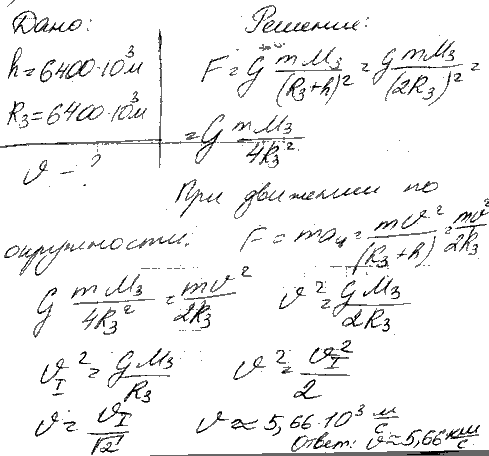 Дано:
h=6400·10³м
R₃=6400·10³м
v - ?
Решение:
F=G mM₃/(R₃+h)² = G mM₃/(2R₃)² =
=G mM₃/4R₃²
При движении по
окружности. F=maц=mv²/(R₃+h)=mv²/2R₃
G mM₃/4R₃² = mv²/2R₃ v²=GM₃/2R₃
v_I²=GM₃/R₃ v²=v_I²/2
v=v_I/√2 v≈5,66·10³ м/с
Ответ: v≈5,66 км/с